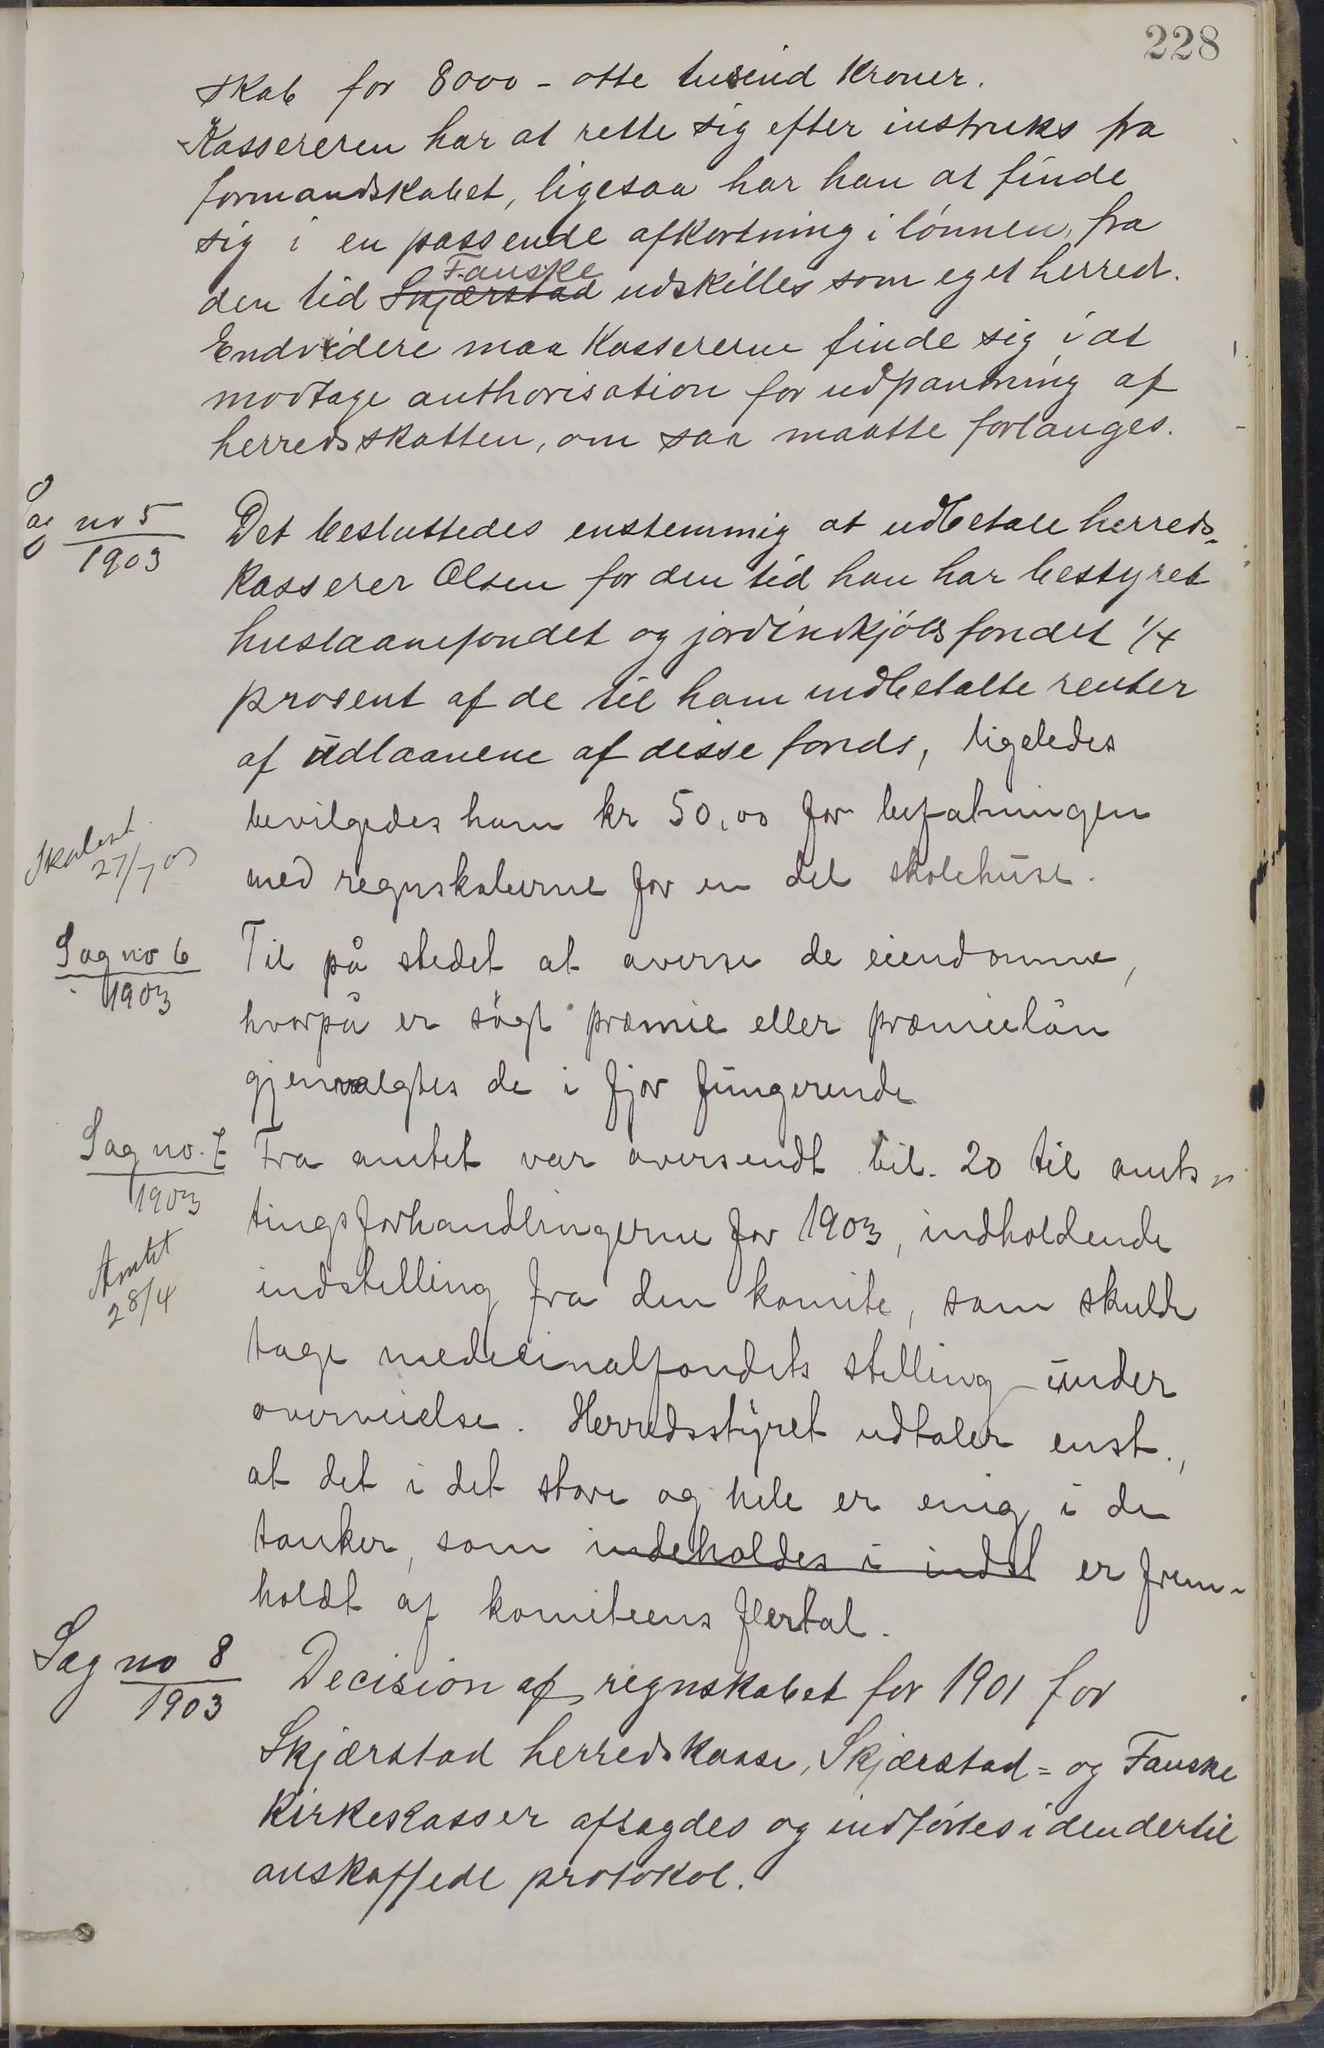 228
skab for 8000 - otte tusind Kroner.
Kassereren har at rette sig efter instruks fra
formandskabet, ligesaa har han at finde
sig i en passende afkortning i lönnen, fra
Fauske
den tid Skjærstad udskilles som eget herred.
Endvidere maa Kassererne finde sig i at
modtage authorisation for udpantning af
herredsskatten, om saa maatte forlanges.
Sag no 5
1903
Det besluttedes enstemmig at udbetale herreds-
kasserer Olsen for den tid han har bestyret
huslaanefondet og jordindkjöbsfondet 1/4
prosent af de til ham indbetalte renter
af udlaanene af disse fonds, ligeledes
bevilgedes ham kr 50,00 for befatningen
27/7 03
med regnskaberne for en del skolehuse.
Sag no 6
1903
Til på stedet at overse de eiendomme,
hvorpå er søgt præmie eller præmielån
gjenvalgtes de i fjor fungerende
Sag no. 7
1903
Fra amtet var oversendt bil. 20 til amts-
tingsforhandlingerne for 1903, indholdende
Amtet
28/4
indstilling fra den komite, som skulde
tage medicinalfondets stilling under
overveielse. Herredsstyret udtaler enst.,
at det i det store og hele er enig i de
tanker, som indeholdes i indst er frem-
holdt af komiteens flertal.
Sag no 8
1903
Decision af regnskabet for 1901 for
Skjærstad herredskasse, Skjærstad= og Fauske
Kirkeskasser afsagdes og indførtes i den dertil
anskaffede protokol.